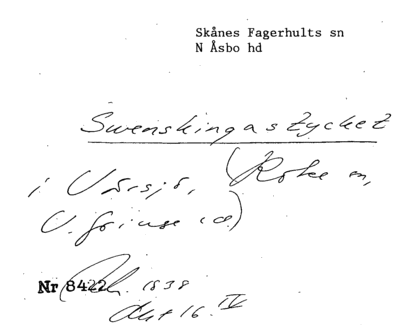 Skånes Fagerhults sn
N Åsbo hd
Swenskingastycket
i Värsjö, (Röke sn,
V. Göinge hd)
Nr 8422 1838
Akt 16. IV